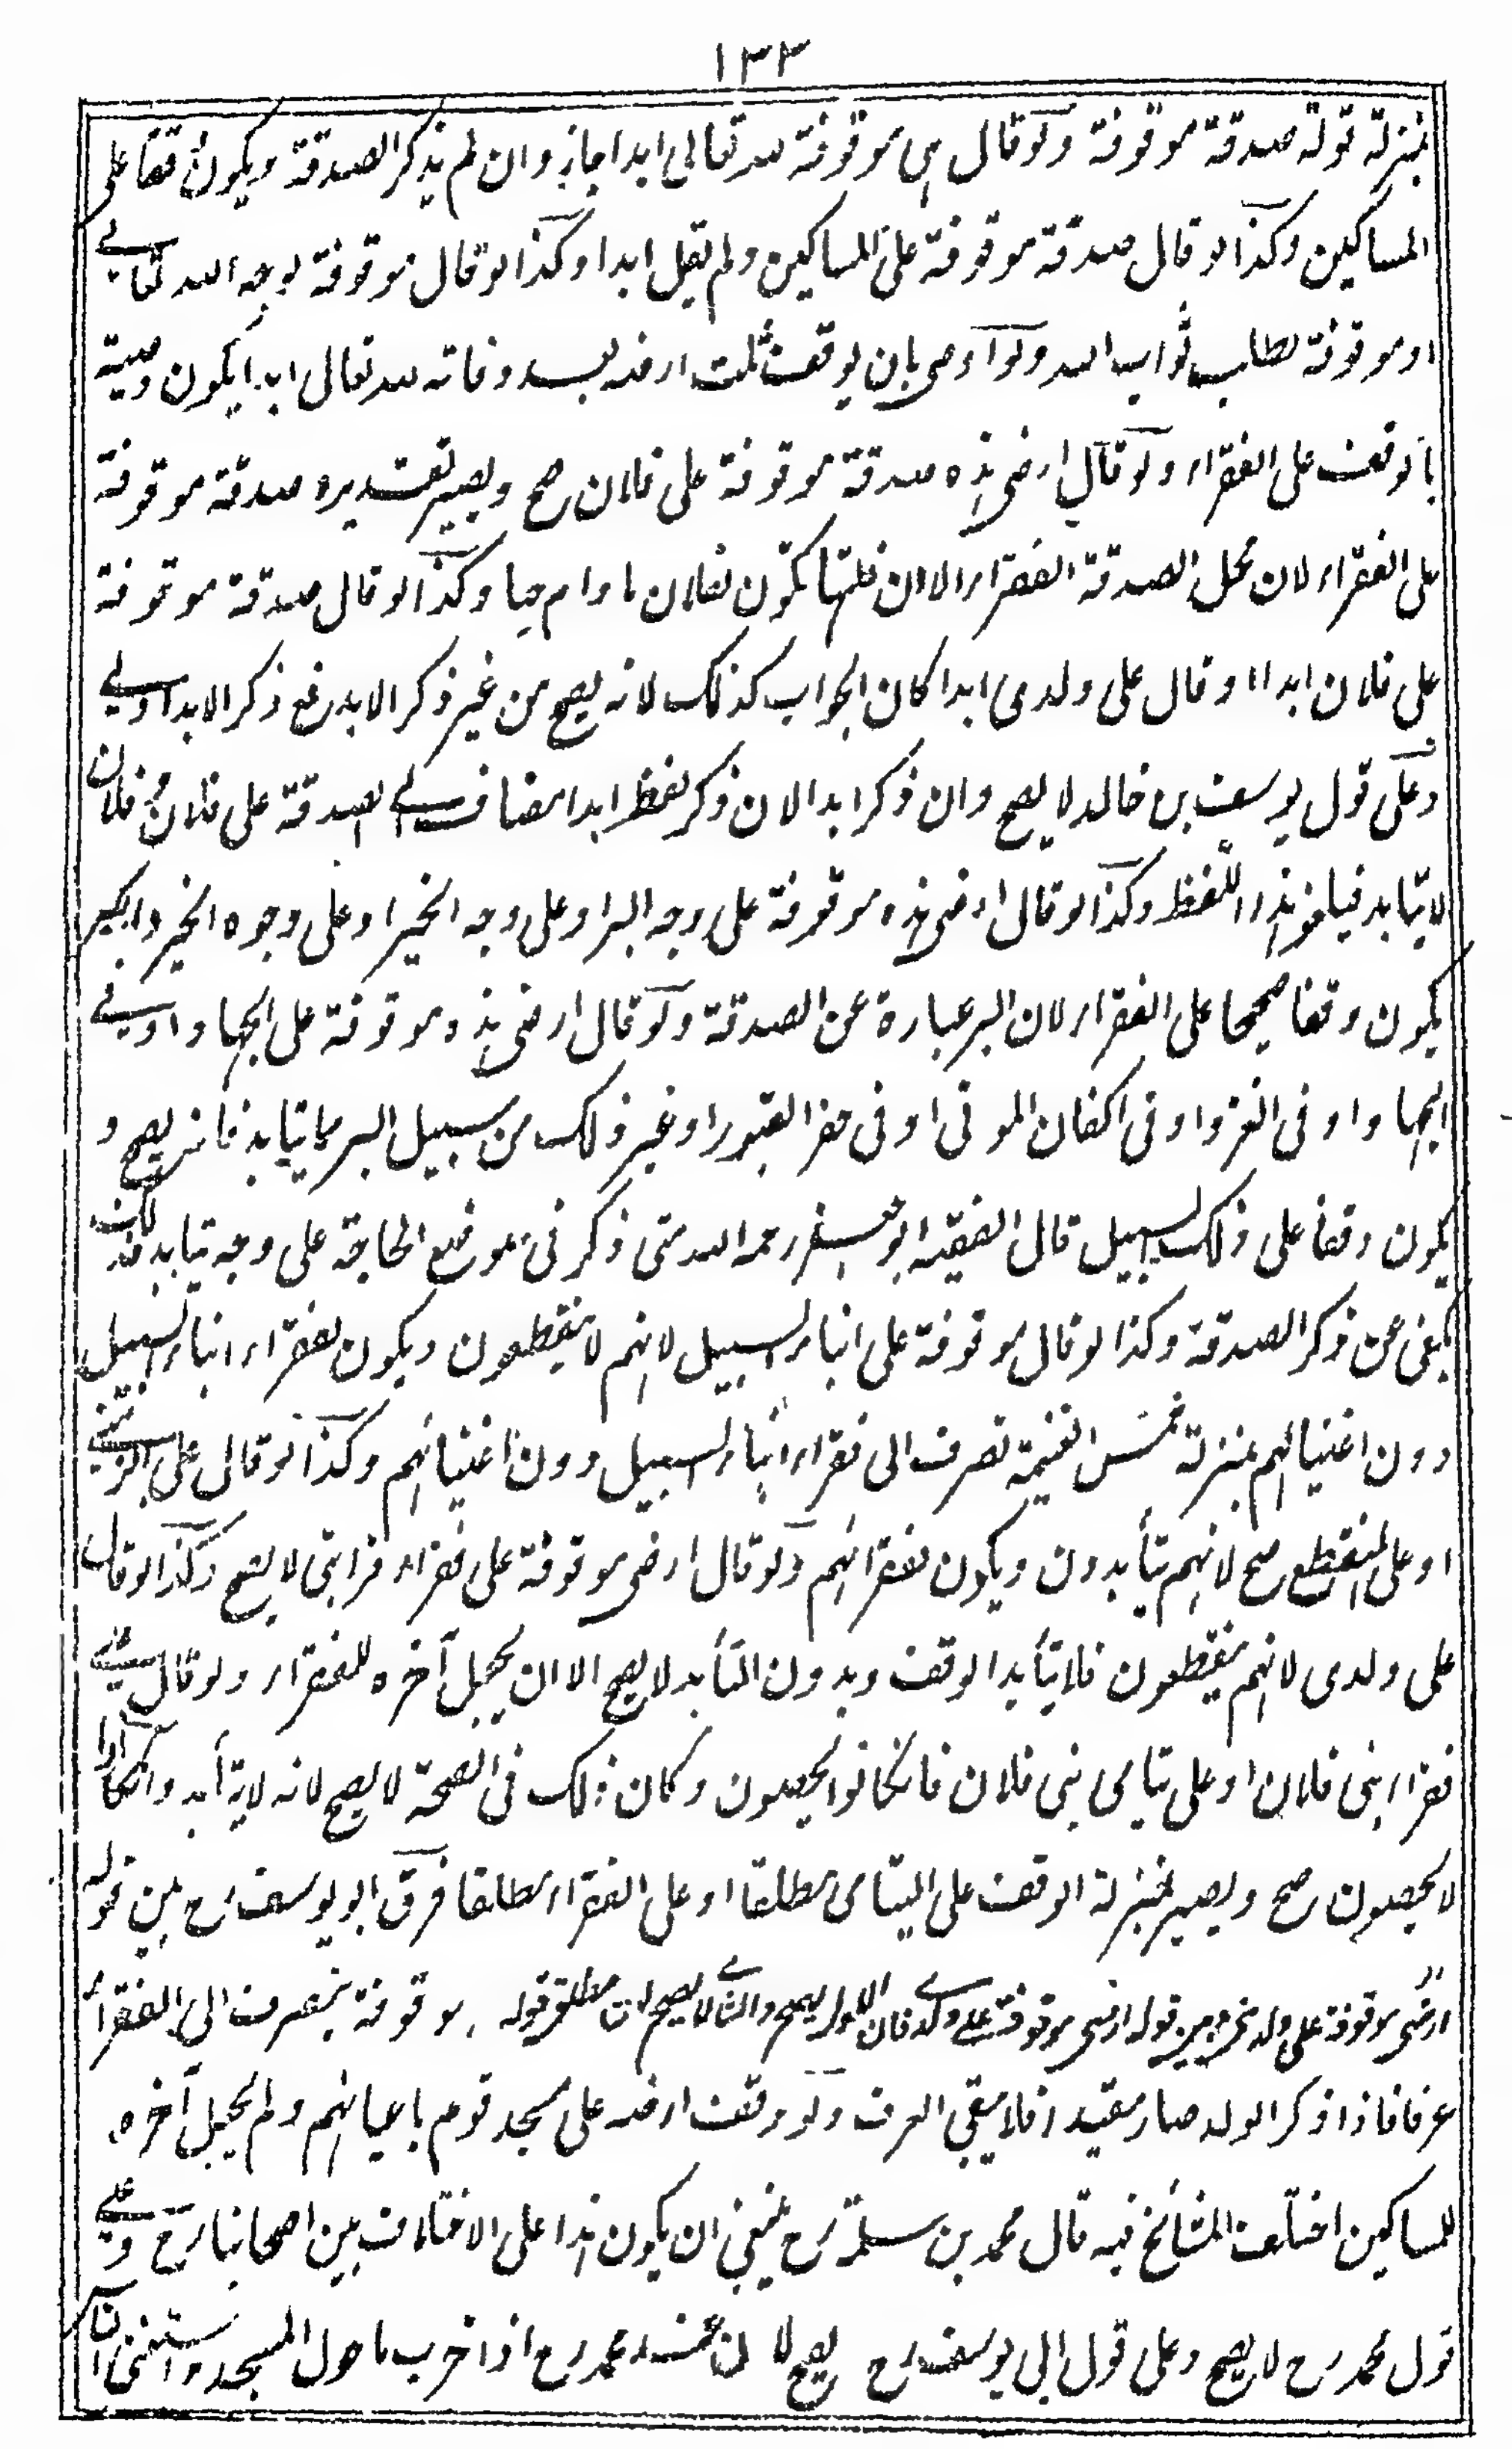 ١٣٣
بمنزلة قوله صدقة موقوفة ولو قال هى موقوفة لله تعالى ابدا جاز وان لم يذكر الصدقة ويكون وقفا على
المساكين وكذا لو قال صدقة موقوفة على المساكين ولم يقل ابدا وكذا لو قال موقوفة لوجه الله تعالى
او موقوفة لطلب ثواب الله ولو اوصى بان يوقف ثلث ارضه بعد وفاته لله تعالى ابدا يكون وصية
بالوقف على الفقراء ولو قال ارضى هذه صدقة موقوفة على فلان صح ويصير تقديره صدقة موقوفة
على الفقراء لان محل الصدقة الفقراء الا ان غلتها تكون لفلان ما دام حيا وكذا لو قال صدقة موقوفة
على فلان ابدا او قال على ولدى ابدا كان الجواب كذلك لانه يصح من غير ذكر الابد فمع ذكر الابد اولى
وعلى قول يوسف بن خالد لا يصح وان ذكر ابدا لان ذكر لفظ ابدا مضاف الى الصدقة على فلان وفلان
لا يتابد فيلغو هذا اللفظ وكذا لو قال ارضى هذه موقوفة على وجه البر او على وجه الخير او على وجوه الخير والبر
يكون وقفا صحيحا على الفقراء لان البر عبارة عن الصدقة ولو قال ارضى هذه موقوفة على الجهاد او فى
الجهاد او فى الغزو او فى اكفان الموتى او فى حفر القبور او غير ذلك من سبيل البر مما يتابد فانه يصح و
يكون وقفا على ذلك السبيل قال الفقيه ابو جعفر رحمه الله متى ذكر فى موضع الحاجة على وجه يتابد فذلك
يكفى عن ذكر الصدقة وكذا لو قال موقوفة على ابناء السبيل لانهم لا ينقطعون ويكون لفقراء ابناء السبيل
دون اغنيائهم بمنزلة خمس الغنيمة تصرف الى فقراء ابناء السبيل دون اغنيائهم وكذا لو قال على الزمنى
او على المنقطع صح لانهم يتأبدون ويكون لفقرائهم ولو قال ارضى موقوفة على فقراء قرابتى لا يصح وكذا لو قال
على ولدى لانهم ينقطعون فلا يتأبد الوقف وبدون التأبد لا يصح الا ان يجعل آخره للفقراء ولو قال على
فقراء بنى فلان او على يتامى بنى فلان فان كانوا يحصون وكان ذلك فى الصحة لا يصح لانه لا يتأبد وان كانوا
لا يحصون صح ويصير بمنزلة الوقف على اليتامى مطلقا او على الفقراء مطلقا فرق ابو يوسف رح بين قوله
ارضى موقوفة على ولدى وبين قوله ارضى موقوفة على ولدى فان الاول يصح والثانى لا يصح لان مطلق قوله موقوفة ينصرف الى الفقراء
عرفا فاذا ذكر الولد صار مقيدا فلا يبقى العرف ولو وقف ارضه على مسجد قوم باعيانهم ولم يجعل آخره
للمساكين اختلف المشائخ فيه قال محمد بن سلمة رح ينبغى ان يكون هذا على الاختلاف بين اصحابنا رح على
قول محمد رح لا يصح وعلى قول ابى يوسف رح يصح لان عند محمد رح اذا خرب ما حول المسجد واستغنى الناس